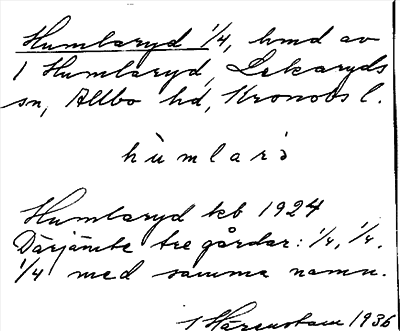 Humlaryd 1/4, hmd av
1 Humlaryd, Lekaryds
sn, Allbo hd, Kronobs l.
hùmlarə
Humlaryd kb 1924
Därjämte tre gårdar: 1/4, 1/4.
1/4 med samma namn.
1936